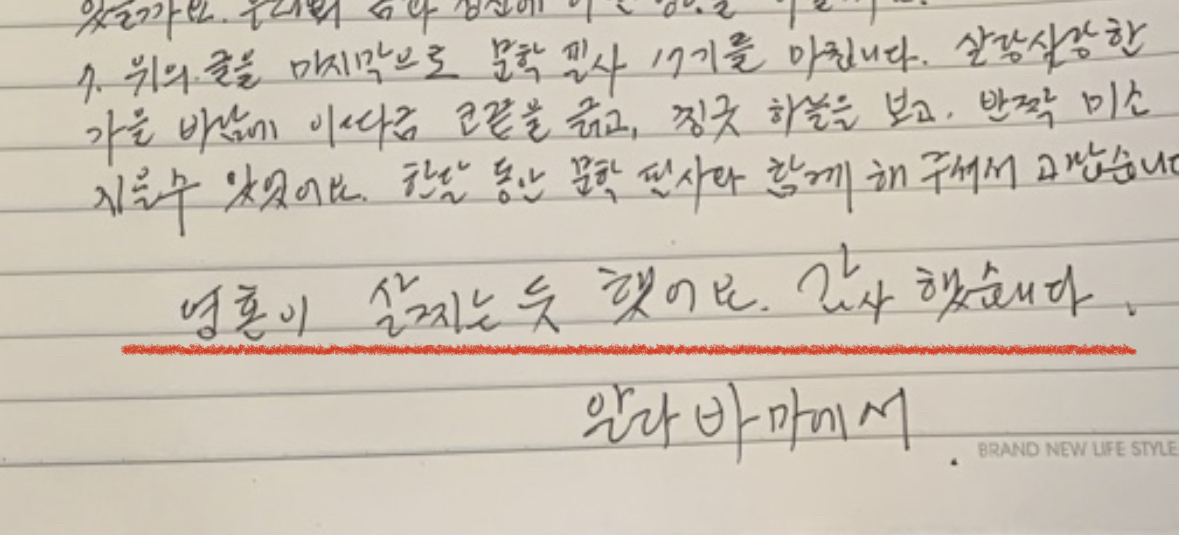 있을까요. 우리의
7. 위의 글을 마지막으로 문학 필사 17기를 마칩니다. 살랑살랑한
가을 바람에 이따금 코끝을 긁고, 찡긋 하늘을 보고. 반짝 미소
지을수 있었어요. 한달 동안 문학 필사와 함께 해 주셔서 고맙습니다
영혼이 살찌는 듯 했어요. 감사 했습니다.
알라바마에서.
BRAND NEW LIFE STYLE